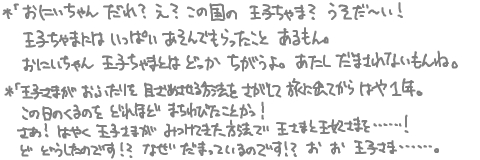 *「おにいちゃん だれ？ え？ この国の 王子ちゃま？ うそだ〜い！
王子ちゃまには いっぱい あそんでもらったこと あるもん。
おにいちゃん 王子ちゃまとは どっか ちがうよ。 あたし だまされないもんね。
*「王子さまが おふたりを 目ざめさせる方法を さがして 旅に出てから はや1年。
この日のくるのを どれほど まちわびたことか！
さあ！ はやく 王子さまが みつけてきた方法で 王さまと王妃さまを……！
ど どうしたのです！？ なぜ だまっているのです！？ お お 王子さま……。